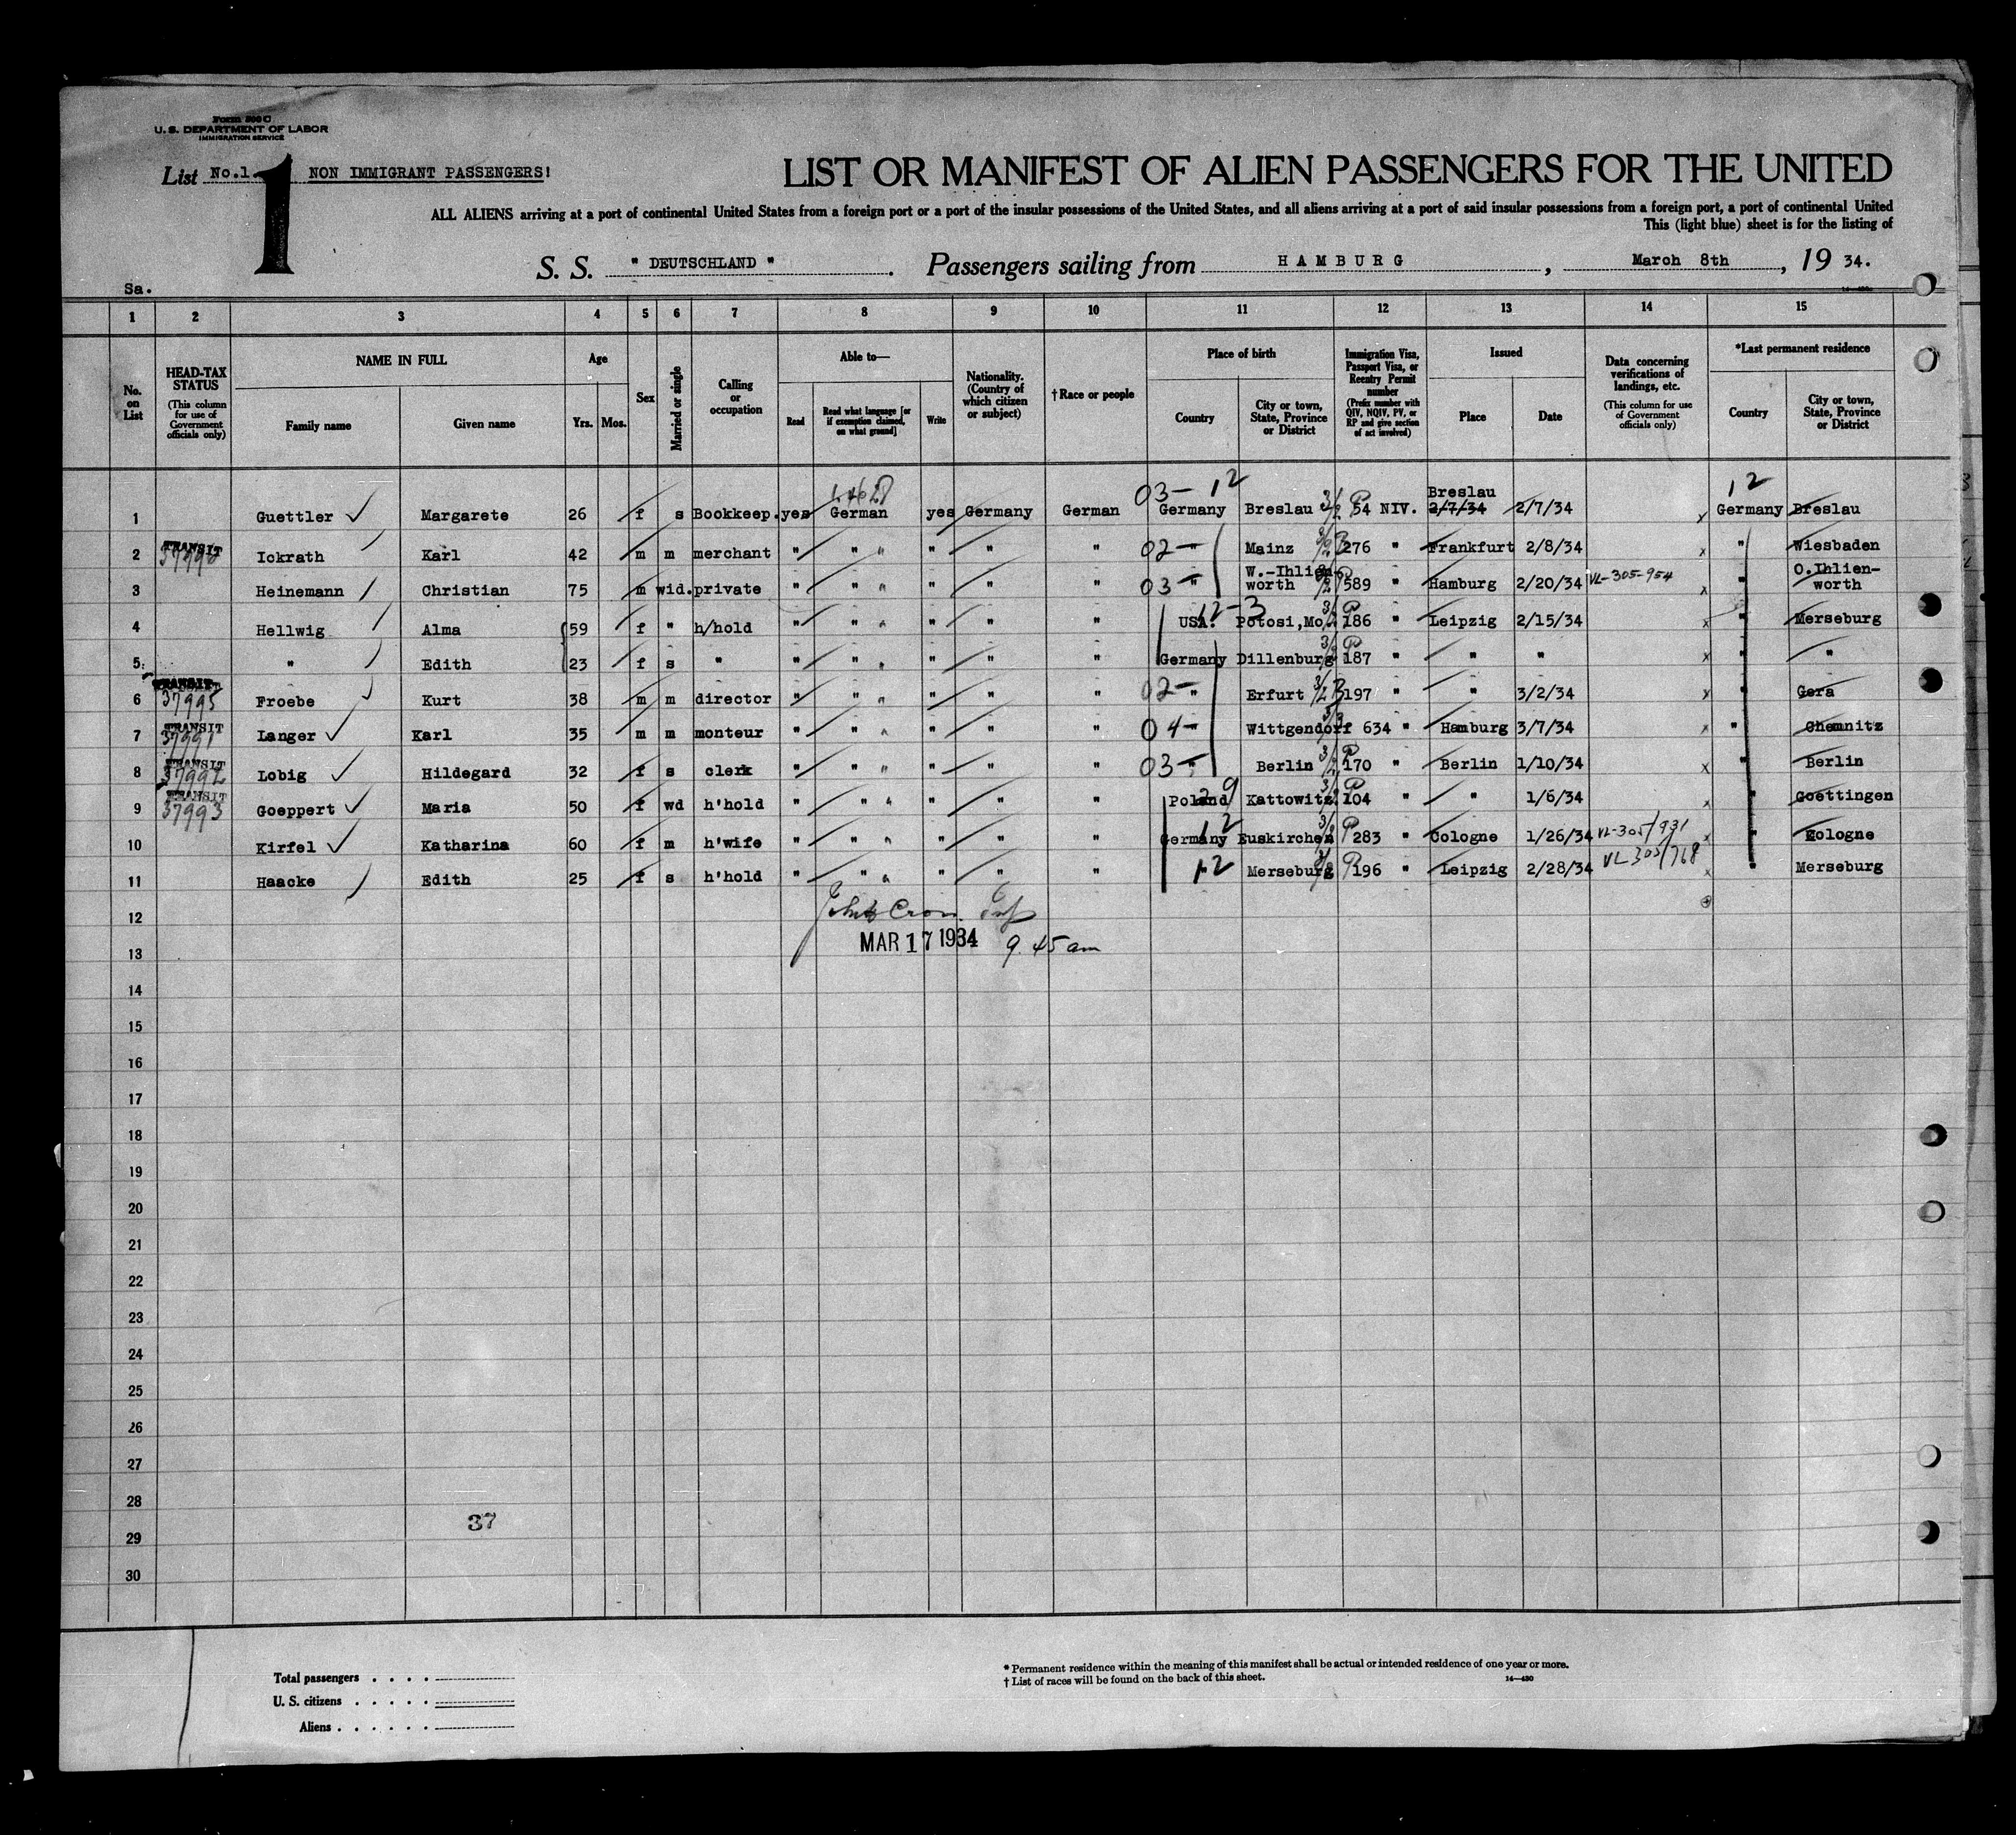 Form 500 C
U. S. DEPARTMENT OF LABOR
IMMIGRATION SERVICE
List No.1 NON IMMIGRANT PASSENGERS!
1
LIST OR MANIFEST OF ALIEN PASSENGERS FOR THE UNITED
ALL ALIENS arriving at a port of continental United States from a foreign port or a port of the insular possessions of the United States, and all aliens arriving at a port of said insular possessions from a foreign port, a port of continental United
This (light blue) sheet is for the listing of
S. S. " DEUTSCHLAND " . Passengers sailing from HAMBURG , March 8th , 19 34.
Sa.
1 2 3 4 5 6 7 8 9 10 11 12 13 14 15
No. on List
HEAD-TAX STATUS (This column for use of Government officials only)
NAME IN FULL
Family name
Given name
Age
Yrs. Mos.
Sex
Married or single
Calling or occupation
Able to—
Read
Read what language [or if exemption claimed, on what ground]
Write
Nationality. (Country of which citizen or subject)
† Race or people
Place of birth
Country
City or town, State, Province or District
Immigration Visa, Passport Visa, or Reentry Permit number (Prefix number with QIV, NQIV, PV, or RP and give section of act involved)
Issued
Place
Date
Data concerning verifications of landings, etc. (This column for use of Government officials only)
*Last permanent residence
Country
City or town, State, Province or District
03- 12 12
1 Guettler Margarete 26 f s Bookkeep. yes German yes Germany German Germany Breslau 54 NIV. Breslau 2/7/34 2/7/34 x Germany Breslau
2 TRANSIT Ickrath Karl 42 m m merchant " " " " " " 02- " Mainz 276 " Frankfurt 2/8/34 x " Wiesbaden
3 Heinemann Christian 75 m wid. private " " " " " " 03- " W.-Ihlien-worth 589 " Hamburg 2/20/34 VL-305-954 x " O.Ihlien-worth
4 Hellwig Alma 59 f " h/hold " " " " " " USA. 12-3 Potosi,Mo. 186 " Leipzig 2/15/34 x " Merseburg
5 " Edith 23 f s " " " " " " " Germany Dillenburg 187 " " " x " "
6 TRANSIT 37995 Froebe Kurt 38 m m director " " " " " " 02- " Erfurt 197 " " 3/2/34 x " Gera
7 TRANSIT 37991 Langer Karl 35 m m monteur " " " " " " 04- Wittgendorf 634 " Hamburg 3/7/34 " Chemnitz
8 TRANSIT 37992 Lobig Hildegard 32 f s clerk " " " " " " 03- " Berlin 170 " Berlin 1/10/34 x " Berlin
9 TRANSIT 37993 Goeppert Maria 50 f wd h'hold " " " " " " Poland 29 Kattowitz 104 " " 1/6/34 x " Goettingen
10 Kirfel Katharina 60 f m h'wife " " " " " " Germany 12 Euskirchen 283 " Cologne 1/26/34 VL-305/931 x " Cologne
11 Haacke Edith 25 f s h'hold " " " " " " 12 " Merseburg 196 " Leipzig 2/28/34 VL 305/768 x " Merseburg
12
MAR 17 1934 9.45 am
13
14
15
16
17
18
19
20
21
22
23
24
25
26
27
28
37
29
30
Total passengers . . . .
U. S. citizens . . . . .
Aliens . . . . . .
* Permanent residence within the meaning of this manifest shall be actual or intended residence of one year or more.
† List of races will be found on the back of this sheet.
14—430